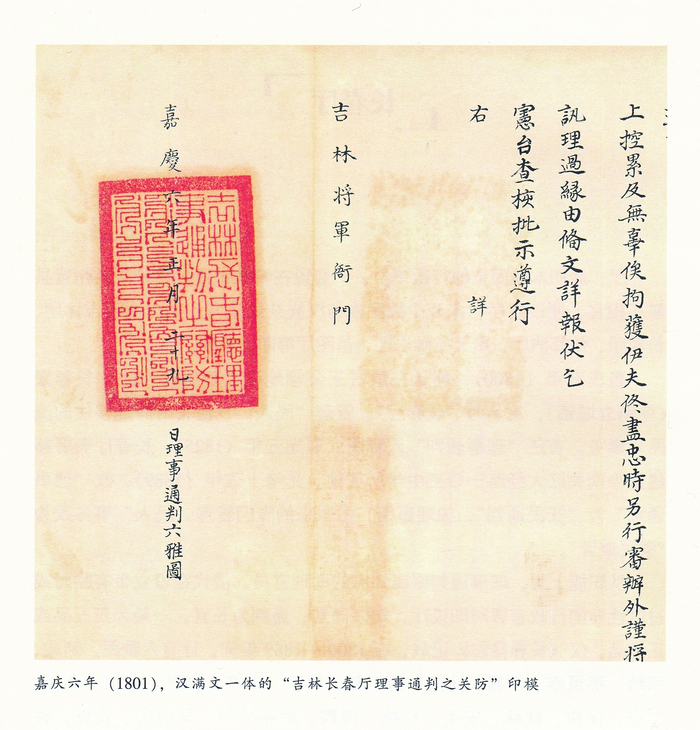 上控累及無辜俟拘獲伊夫佟盡忠時另行審辦外謹將
訊理過緣由偹文詳報伏乞
憲台查核批示遵行
右 詳
吉林将軍衙門
嘉慶六年正月二十九日理事通判六雅圖
吉林長春廳理
事通判之關防
嘉庆六年（1801），汉满文一体的“吉林长春厅理事通判之关防”印模